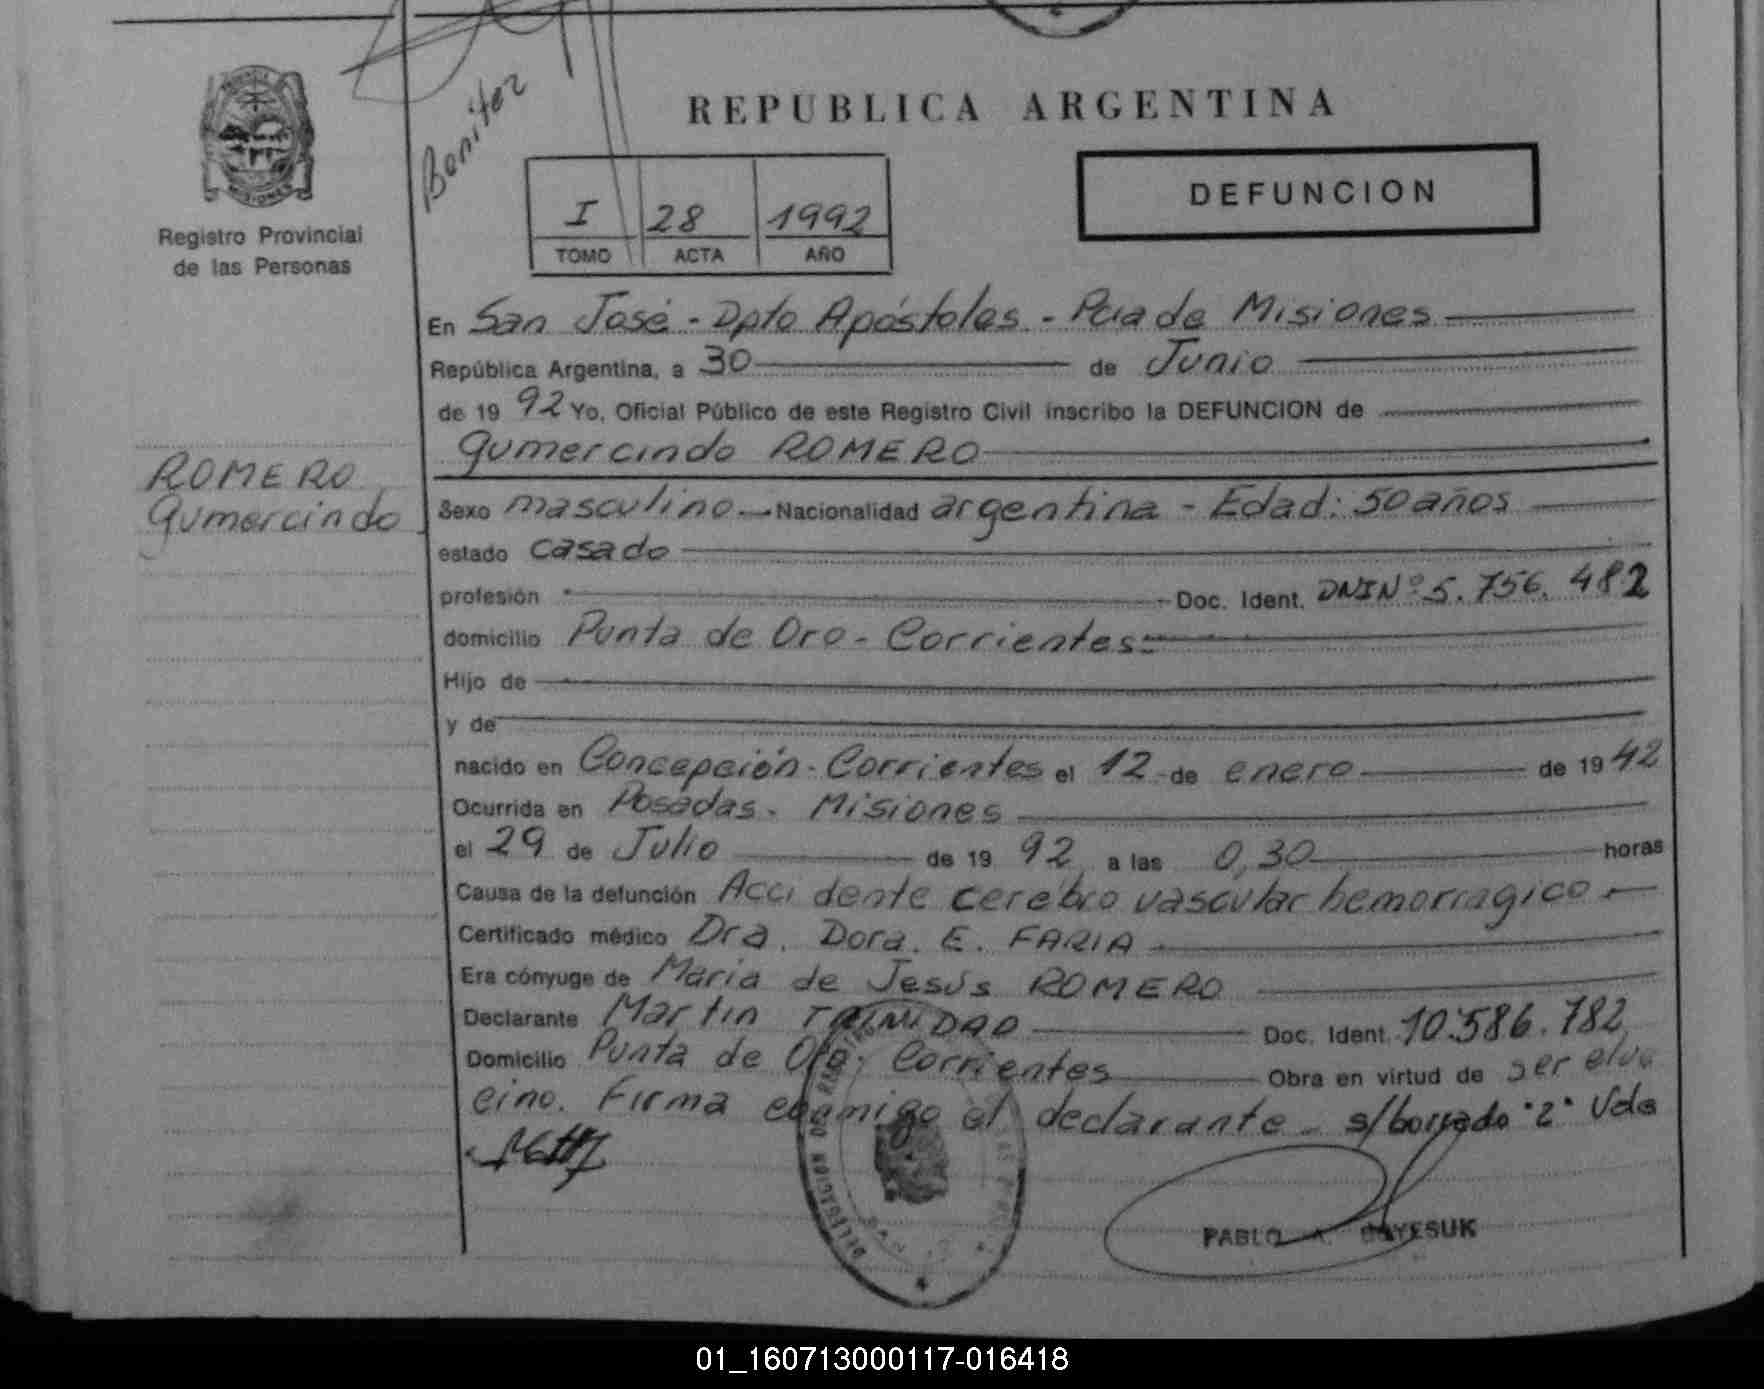 Benitez
REPUBLICA ARGENTINA
MISIONES
DEFUNCION
Registro Provincial
de las Personas
I 28 1992
TOMO ACTA AÑO
En San José - Dpto Apóstoles - Pcia de Misiones
República Argentina, a 30 de Junio
de 19 92 Yo, Oficial Público de este Registro Civil inscribo la DEFUNCION de
Gumercindo ROMERO
ROMERO
Gumercindo
Sexo masculino. Nacionalidad argentina - Edad: 50 años
estado casado
profesión Doc. Ident. DNI Nº 5.756.482
domicilio Punta de Oro - Corrientes
Hijo de
y de
nacido en Concepción - Corrientes el 12 de enero de 19 42
Ocurrida en Posadas - Misiones
el 29 de Julio de 19 92 a las 0,30 horas
Causa de la defunción Accidente cerebro vascular hemorragico
Certificado médico Dra. Dora. E. FARIA
Era cónyuge de Maria de Jesús ROMERO
Declarante Martin TRINIDAD Doc. Ident. 10.586.782
Domicilio Punta de Oro - Corrientes Obra en virtud de ser el ve
cino. Firma conmigo el declarante - s/borrado "2" Vale
DELEGACION DE
PABLO A.
01_160713000117-016418